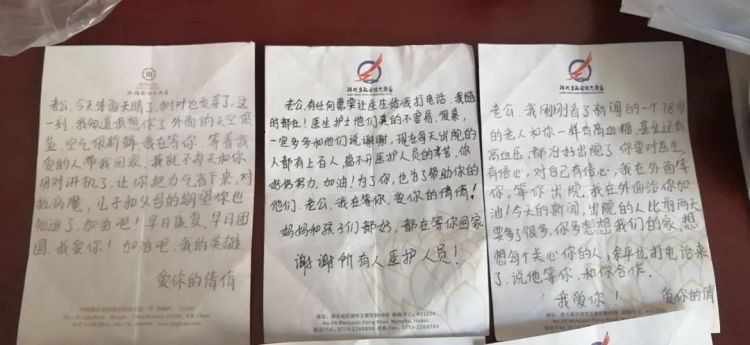 老公,今天外面天晴了,树叶也发芽了,这
一刻,我知道我想你了,外面的天空很
蓝,空气很新鲜,我在等你,等着我
爱的人带我回家,我就不每天和你
用对讲机了,让你把力气省下来,对
抗病魔,儿子和父母的期望你也
知道了,加油吧!早日康复,早日团
圆,我爱你!加油吧,我的英雄
爱你的倩倩
老公,有任何需要让医生给我打电话,我随
时都在!医生护士他们真的不容易,很累,
一定多和他们说谢谢,现在每天出院的
人都有上百人,离不开医护人员的辛苦,你
好好努力,加油!为了你,也为了帮助你的
他们,老公,我在等你,爱你的倩倩!
妈妈和孩子们都好,都在等你回家
谢谢所有人医护人员!
No.46 Wenquan Dong Road, Honghu, Hubei.
老公,我刚刚看了新闻的一个78岁
的老人和你一样有高血糖,甚至还有
高血压,都治好出院了,你要对医生,
有信心,对自己有信心,我在外面等
你,等你出院,我在外面给你加
油!今天的新闻,出院的人比前两天
要多了很多,你多想想我们的家,想
想每个关心你的人,余总也打电话来
了,说他等你,和你合作。
我爱你!
爱你的倩